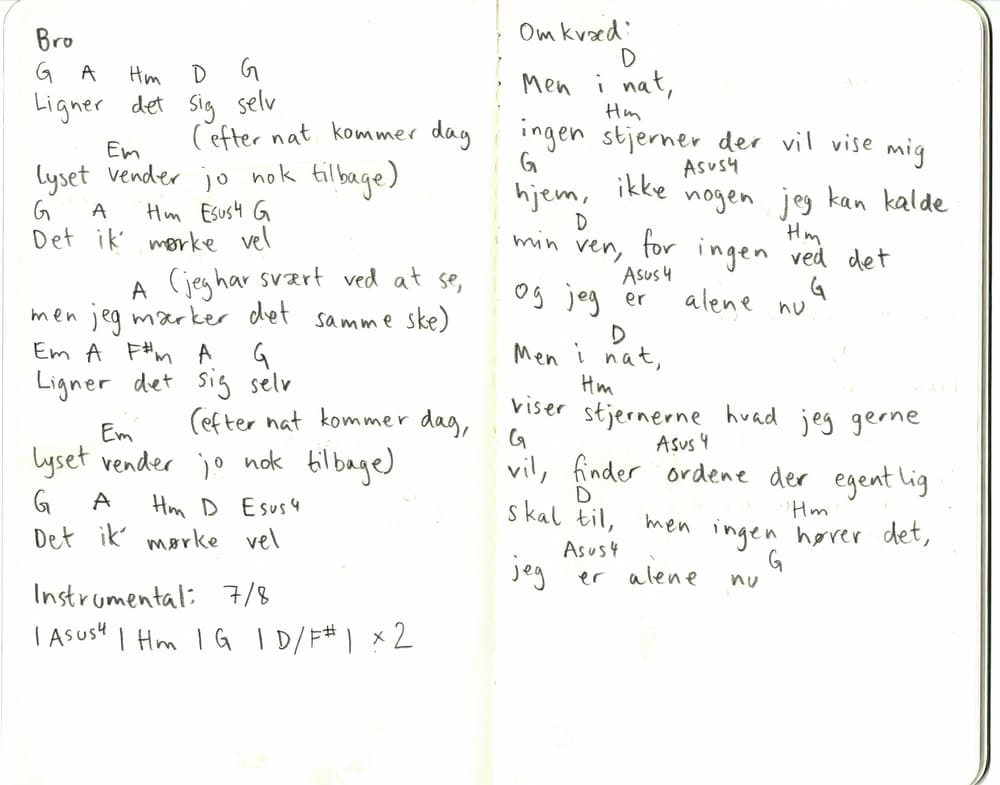 Bro
G A Hm D G
Ligner det sig selv
(efter nat kommer dag
Em
lyset vender jo nok tilbage)
G A Hm Esus4 G
Det ik' mørke vel
(jeg har svært ved at se,
A
men jeg mærker det samme ske)
Em A F#m A G
Ligner det sig selv
(efter nat kommer dag,
Em
lyset vender jo nok tilbage)
G A Hm D Esus4
Det ik' mørke vel
Instrumental: 7/8
| Asus4 | Hm | G | D/F# | x 2
Omkvæd:
D
Men i nat,
Hm
ingen stjerner der vil vise mig
G Asus4
hjem, ikke nogen jeg kan kalde
D Hm
min ven, for ingen ved det
Asus4 G
og jeg er alene nu
D
Men i nat,
Hm
viser stjernerne hvad jeg gerne
G Asus4
vil, finder ordene der egentlig
D Hm
skal til, men ingen hører det,
Asus4 G
jeg er alene nu